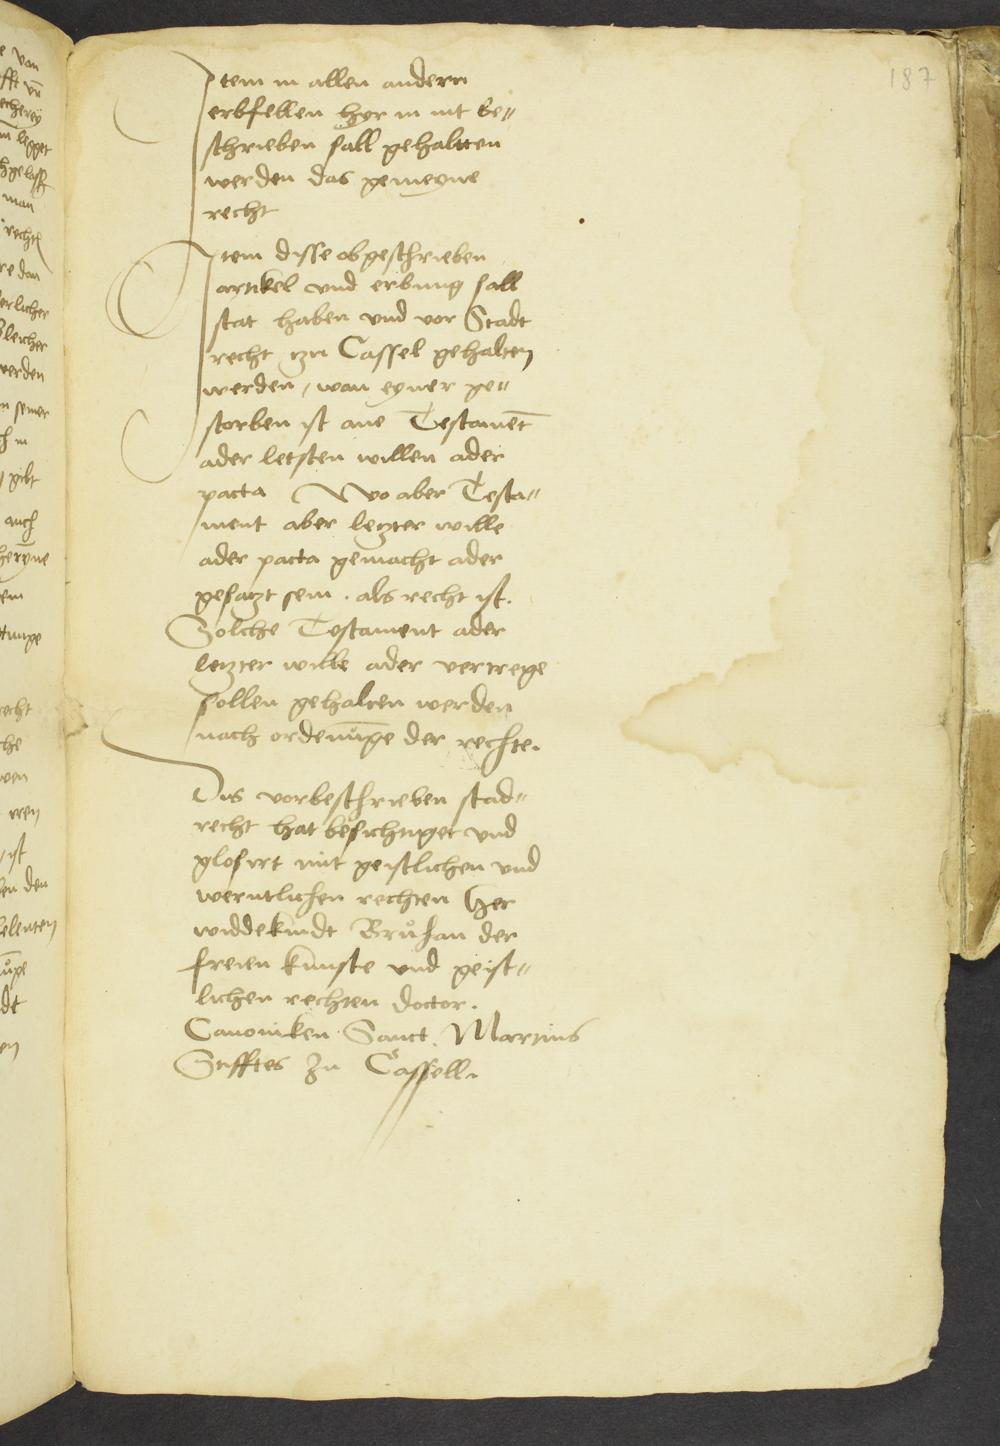 187
Item in allen andern
erbfellen hyr in nit be"
schrieben sall gehaltten
werden das gemeyne
recht
Item disse obgeschrieben
artikel vnd erbung sall
stat haben vnd vor Stadt
recht tzu Cassel gehalten
werden, wan eyner ge"
storben ist ane Testament
ader letsten willen ader
pacta Wo aber Testa"
ment aber letzter wille
ader pacta gemacht ader
gesatzt sein. als recht ist.
Solche Testament ader
letzter wille ader vertrege
sollen gehalten werden
nach ordenunge der rechte.
Dis vorbeschrieben stad"
recht hat besichtiget vnd
glosirt mit geistlichen vnd
werntlichen rechten Her
widdekindt der
freien kunste vnd geist"
lichen rechten doctor.
Canoniken Sanct. Martins
Stifftes zu Cassell.